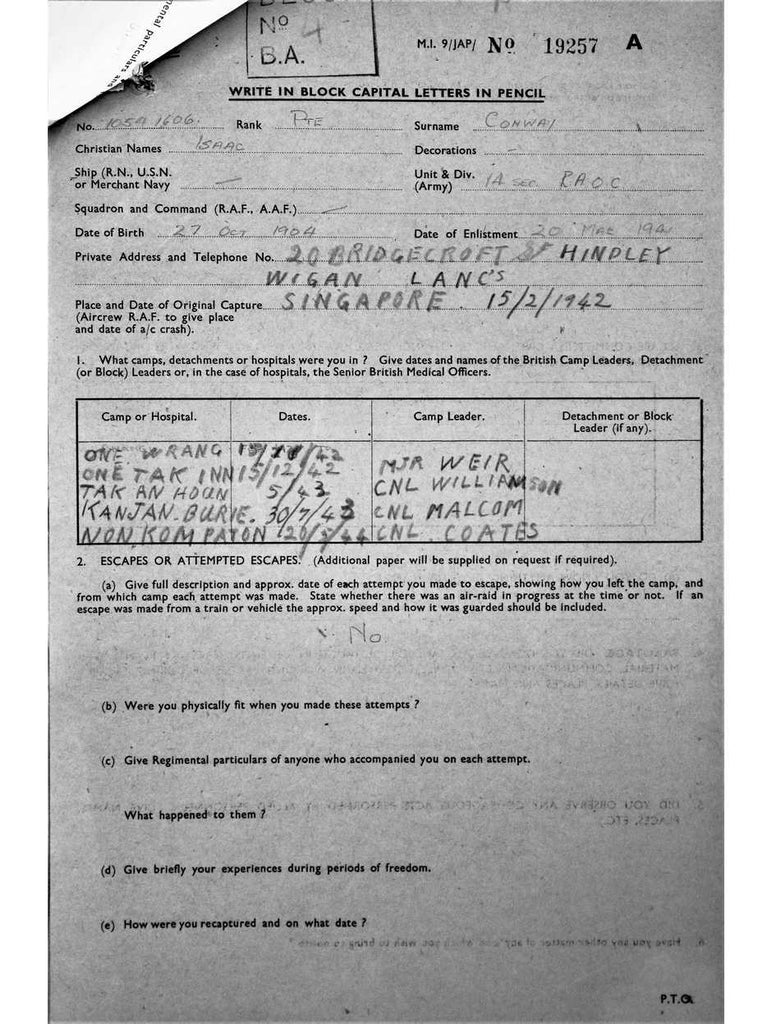 mental particulars and
No 4
B.A.
M.I. 9/JAP/ No 19257 A
WRITE IN BLOCK CAPITAL LETTERS IN PENCIL
No. 10591606. Rank PTE Surname CONWAY
Christian Names ISAAC Decorations —
Ship (R.N., U.S.N. or Merchant Navy —
Unit & Div. (Army) RAOC
Squadron and Command (R.A.F., A.A.F.) —
Date of Birth 27 OCT 1904 Date of Enlistment 20 MAR 1941
Private Address and Telephone No. 20 BRIDGECROFT ST HINDLEY
WIGAN LANC'S
Place and Date of Original Capture SINGAPORE. 15/2/1942
(Aircrew R.A.F. to give place
and date of a/c crash).
1. What camps, detachments or hospitals were you in ? Give dates and names of the British Camp Leaders, Detachment
(or Block) Leaders or, in the case of hospitals, the Senior British Medical Officers.
Camp or Hospital. Dates. Camp Leader. Detachment or Block
Leader (if any).
ONE WRANG
ONE TAK INN 15/12/42 MJR WEIR
TAK AN HOUN 5/43 CNL WILLIAMSON
KANJAN.BURIE. 30/7/43 CNL MALCOM
NON.KOMPATON CNL. COATES
2. ESCAPES OR ATTEMPTED ESCAPES. (Additional paper will be supplied on request if required).
(a) Give full description and approx. date of each attempt you made to escape, showing how you left the camp, and
from which camp each attempt was made. State whether there was an air-raid in progress at the time or not. If an
escape was made from a train or vehicle the approx. speed and how it was guarded should be included.
No
(b) Were you physically fit when you made these attempts ?
(c) Give Regimental particulars of anyone who accompanied you on each attempt.
What happened to them ?
(d) Give briefly your experiences during periods of freedom.
(e) How were you recaptured and on what date ?
P.T.O.